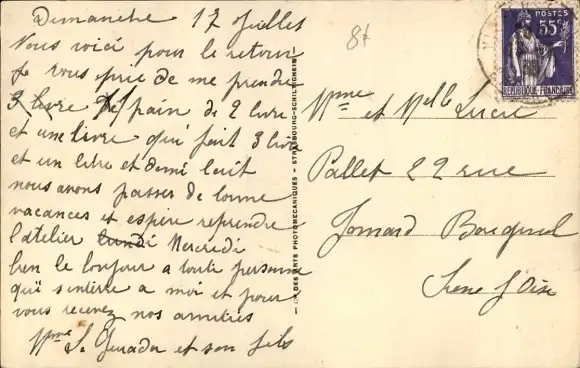 Dimanche 17 Juillet
Nous voici pour le retour
Je vous prie de me prendre
3 livre pain de 2 livre
et une livre qui fait 3 livre
et un litre et demi lait
nous avons passer de bonne
vacances et espère reprendre
l'atelier lundi Mercredi
bien le bonjour a toute personne
qui s'intire a moi et pour
vous recevez nos amitiés
Mme et son fils
DES ARTS PHOTOMECANIQUES - STRASBOURG-SCHILTIGHEIM
8f
POSTES
55c
REPUBLIQUE FRANÇAISE
Mme et Melle Lucie
Pallet 22 rue
Jomard
Seine